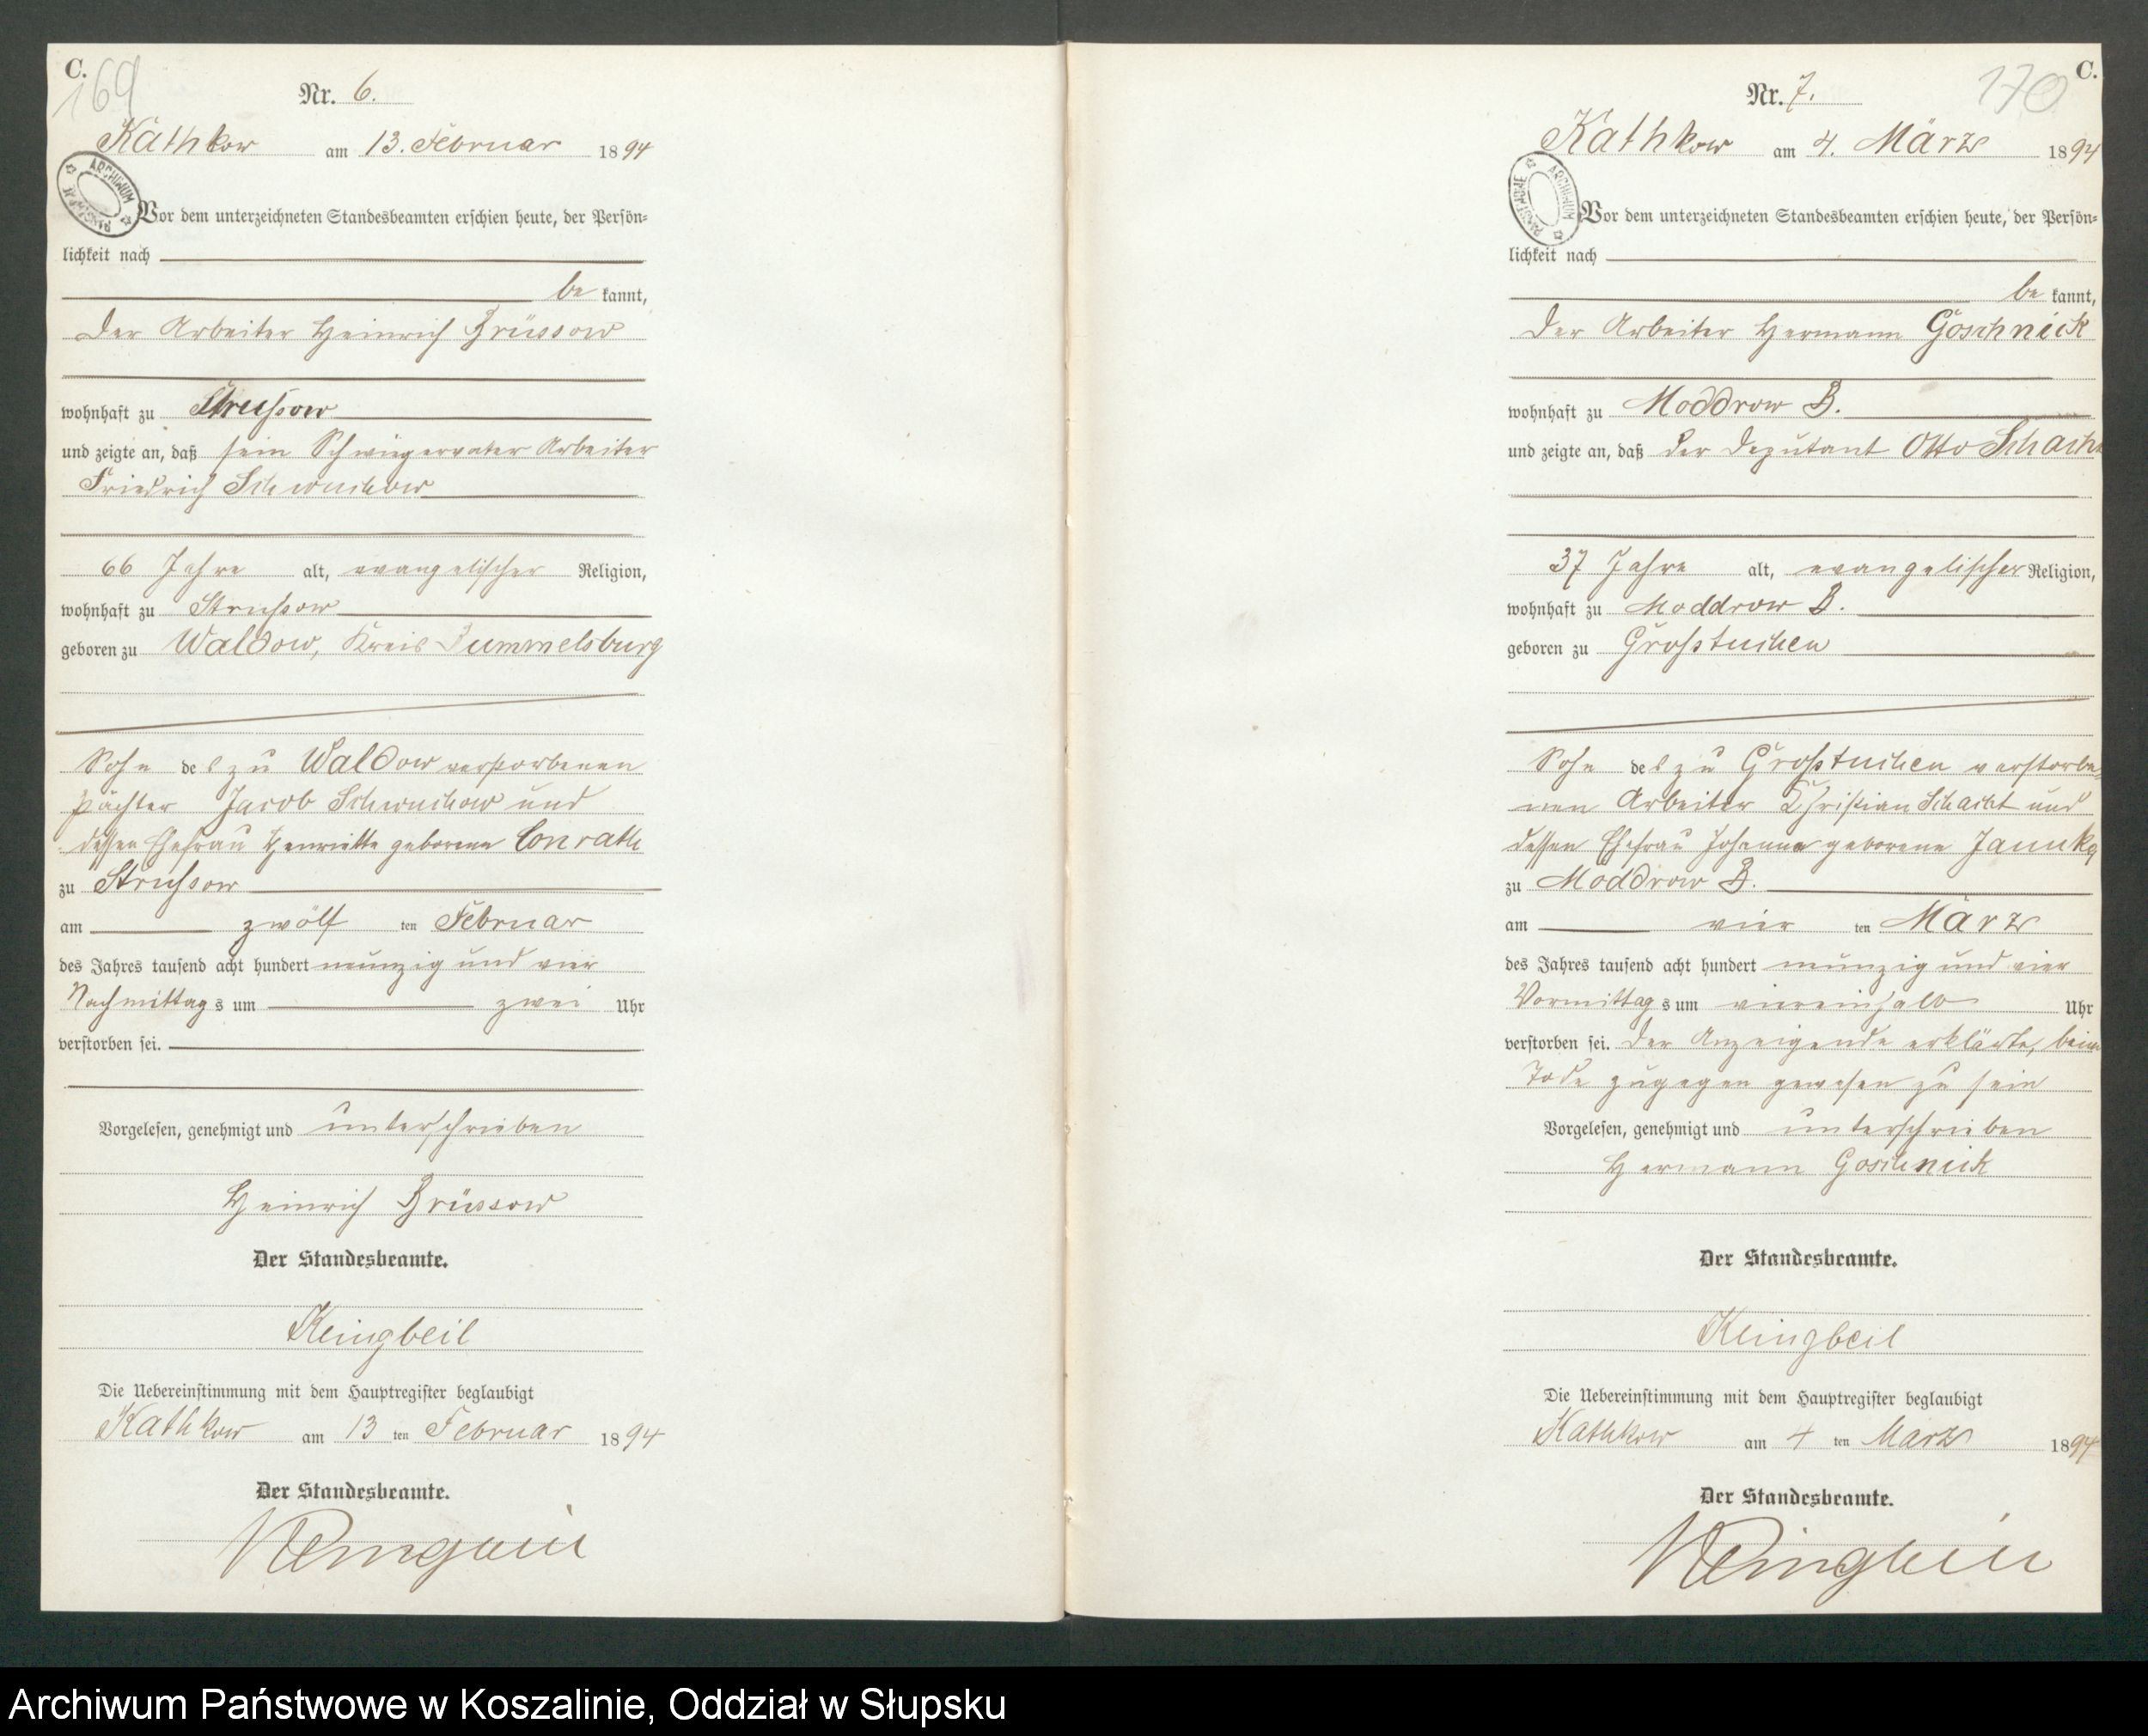 C.
169
Nr. 6.
Kathkow am 13. Februar 1894
ARCHIWUM
Vor dem unterzeichneten Standesbeamten erschien heute, der Persön-
lichkeit nach
be kannt,
der Arbeiter Heinrich Brüssow
wohnhaft zu Strussow
und zeigte an, daß sein Schwiegervater Arbeiter
Friedrich Schwuchow
66 Jahre alt, evangelischer Religion,
wohnhaft zu Strussow
geboren zu Waldow, Kreis Rummelsburg
Sohn des zu Waldow verstorbenen
Pächter Jacob Schwuchow und
dessen Ehefrau Henriette geborene Conrath
zu Strussow
am zwölf ten Februar
des Jahres tausend acht hundert neunzig und vier
Nachmittags um zwei Uhr
verstorben sei.
Vorgelesen, genehmigt und unterschrieben
Heinrich Brüssow
Der Standesbeamte.
Klingbeil
Die Uebereinstimmung mit dem Hauptregister beglaubigt
Kathkow am 13 ten Februar 1894
Der Standesbeamte.
Klingbeil
C.
170
Nr. 7.
Kathkow am 4. März 1894
PAŃSTWOWE ARCHIWUM
Vor dem unterzeichneten Standesbeamten erschien heute, der Persön-
lichkeit nach
be kannt,
der Arbeiter Hermann Goschnick
wohnhaft zu Moddrow B.
und zeigte an, daß der Deputant Otto Schacht
37 Jahre alt, evangelischer Religion,
wohnhaft zu Moddrow B.
geboren zu Großtuchen
Sohn des zu Großtuchen verstorbe-
nen Arbeiter Christian Schacht und
dessen Ehefrau Johanna geborene
zu Moddrow B.
am vier ten März
des Jahres tausend acht hundert neunzig und vier
Vormittags um viereinhalb Uhr
verstorben sei. Der Anzeigende erklärte, beim
Tode zugegen gewesen zu sein
Vorgelesen, genehmigt und unterschrieben
Hermann Goschnick
Der Standesbeamte.
Klingbeil
Die Uebereinstimmung mit dem Hauptregister beglaubigt
Kathkow am 4 ten März 1894
Der Standesbeamte.
Klingbeil
Archiwum Państwowe w Koszalinie, Oddział w Słupsku